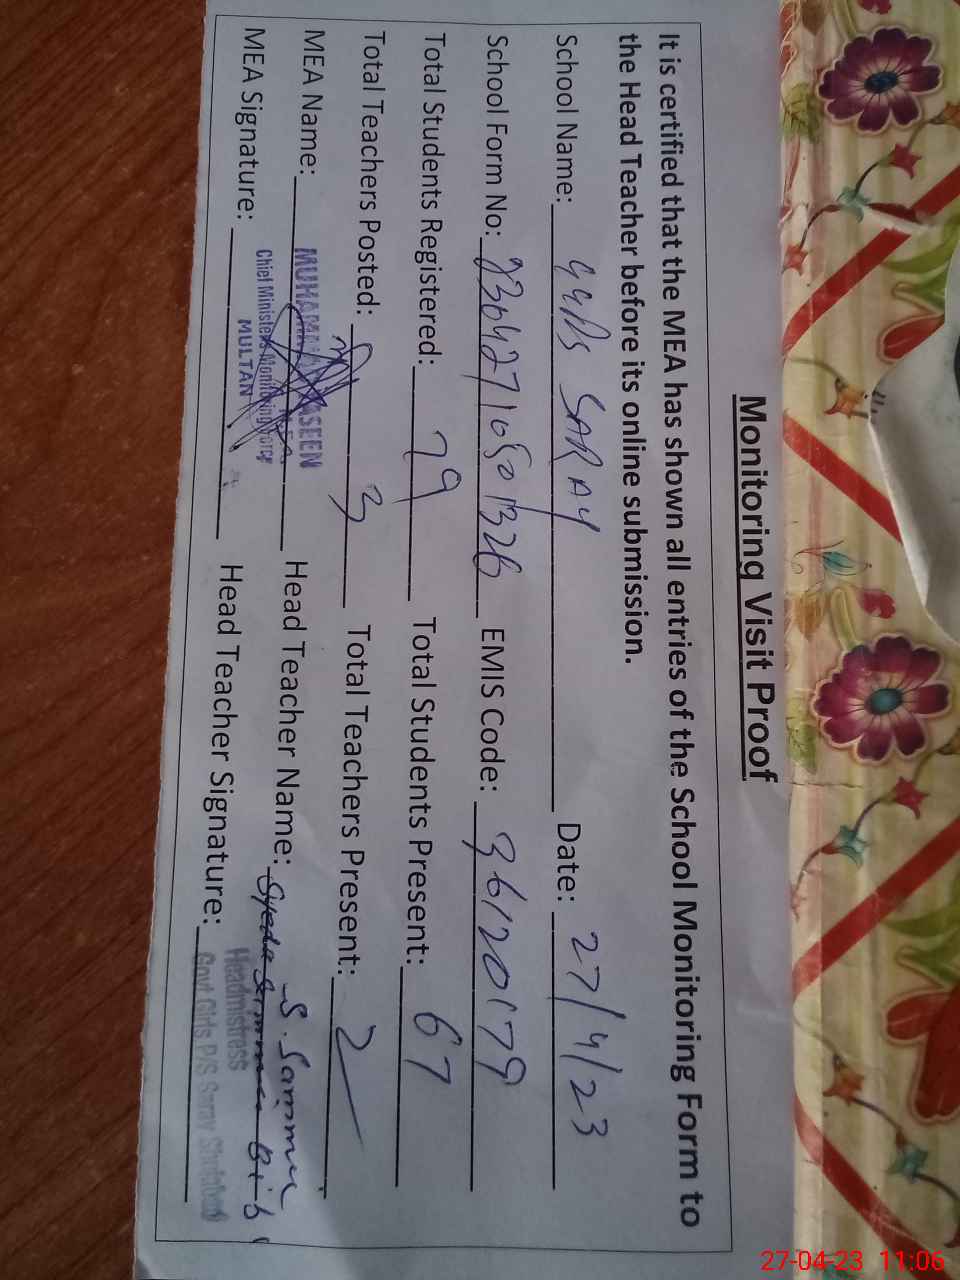 Monitoring Visit Proof
It is certified that the MEA has shown all entries of the School Monitoring Form to
the Head Teacher before its online submission.
School Name: GGPS SARAY Date: 27/4/23
School Form No: EMIS Code: 36120179
Total Students Registered: 79 Total Students Present: 67
Total Teachers Posted: 3 Total Teachers Present: 2
MEA Name: MUHAMMAD Head Teacher Name: Syeda
Chief Ministers Monitoring Force
MULTAN
MEA Signature: Head Teacher Signature:
Headmistress
Govt Girls P/S Saray
27-04-23 11:06